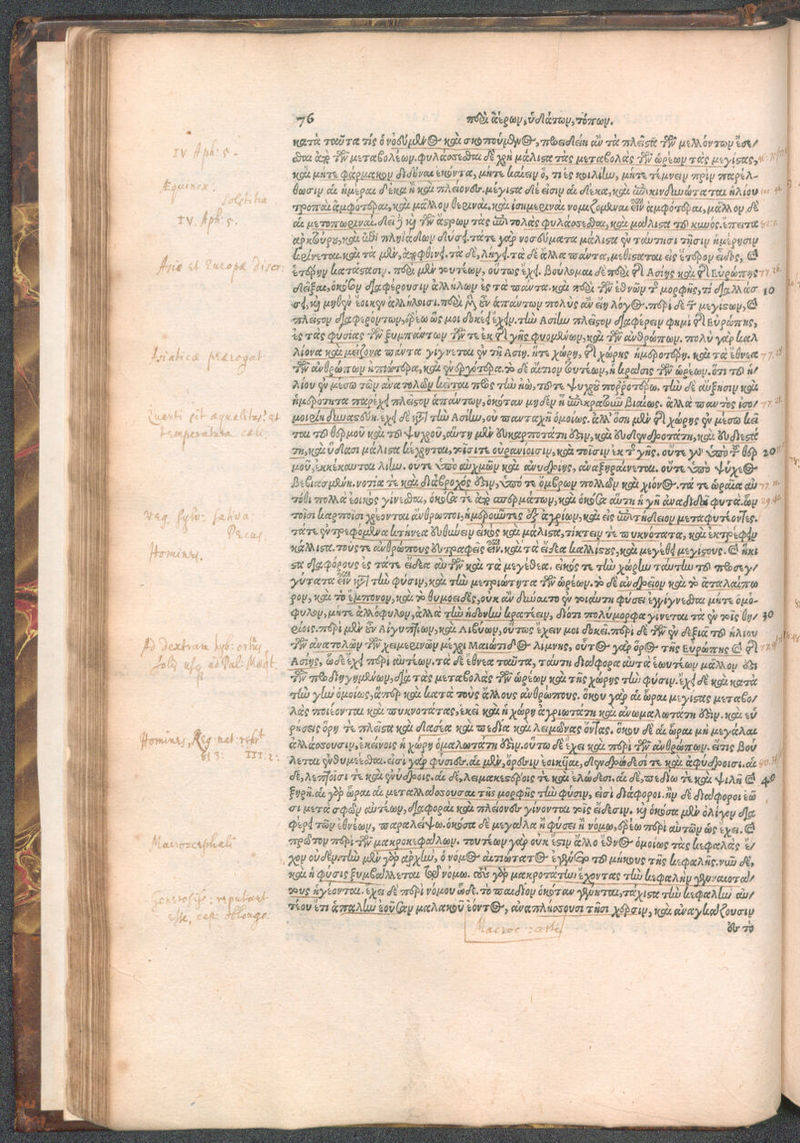 76 περὶ ἀέρων, ὑδάτων, τόπων.
κατὰ ταῦτα τὶς ἐννοεύμενος καὶ σκοπούμενος, προειδείη ἂν τὰ πλεῖστα τῶν μελλόντων ἔσε/
σθαι ἀπὸ τῶν μεταβολέων. φυλάσσεσθαι δὲ χρὴ μάλιστα τὰς μεταβολὰς τῶν ὡρέων τὰς μεγίστας,
καὶ μήτε φάρμακον διδόναι ἑκόντα, μήτε καίειν ὅ, τι ἐς κοιλίην, μήτε τέμνειν πρὶν παρέλ-
θωσιν αἱ ἡμέραι δέκα ἢ καὶ πλείονες. μέγισται δέ εἰσιν αἱ δέκα, καὶ ἐπικινδυνώταται ἡλίου
τροπαὶ ἀμφότεραι, καὶ μᾶλλον θεριναὶ, καὶ ἰσημεριναὶ νομιζόμεναι εἶναι ἀμφότεραι, μᾶλλον δὲ
αἱ μετοπωριναί. δεῖ δὲ καὶ τῶν ἄστρων τὰς ἐπιτολὰς φυλάσσεσθαι, καὶ μάλιστα τοῦ κυνός. ἔπειτα
ἀρκτούρου, καὶ ἔτι πληϊάδων δύσει. τά τε γὰρ νοσεύματα μάλιστα ἐν ταύτῃσι τῇσιν ἡμέρῃσιν
κρίνεται. καὶ τὰ μὲν, ἀποφθίνει. τὰ δὲ, λήγει. τὰ δὲ ἄλλα πάντα, μεθίσταται εἰς ἕτερον εἶδος, καὶ
ἑτέρην κατάστασιν. περὶ μὲν τουτέων, οὕτως ἔχει. Βούλομαι δὲ περὶ τῆς Ἀσίης καὶ τῆς Εὐρώπης
δεῖξαι, ὁκόσον διαφέρουσιν ἀλλήλων ἐς τὰ πάντα. καὶ περὶ τῶν ἐθνέων τῆς μορφῆς, τί διαλλάσ 10
σει, καὶ μηδὲν ἔοικεν ἀλλήλοισι. περὶ μὲν οὖν ἁπάντων πολὺς ἂν εἴη λόγος. περὶ δὲ τῶν μεγίστων, καὶ
πλεῖστον διαφερόντων, ἐρέω ὥς μοι δοκεῖ ἔχειν. τὴν Ἀσίην πλεῖστον διαφέρειν φημὶ τῆς Εὐρώπης,
ἐς τὰς φύσιας τῶν ξυμπάντων τῶν τε ἐκ τῆς γῆς φυομένων, καὶ τῶν ἀνθρώπων. πολὺ γὰρ καλ
λίονα καὶ μείζονα πάντα γίγνεται ἐν τῇ Ἀσίῃ. ἥτε χώρη, τῆς χώρης ἡμεροτέρη. καὶ τὰ ἔθνεα
τῶν ἀνθρώπων ἠπιώτερα, καὶ εὐοργότερα. τὸ δὲ αἴτιον τουτέων, ἡ κρᾶσις τῶν ὡρέων. ὅτι τοῦ ἡ/
λίου ἐν μέσῳ τῶν ἀνατολῶν κεῖται πρὸς τὴν ἠῶ, τοῦτε ψυχροῦ πορροτέρω. τὴν δὲ αὔξησιν καὶ
ἡμερότητα παρέχει πλεῖστον ἁπάντων, ὁκόταν μηδὲν ᾖ ἐπικρατέον βιαίως. ἀλλὰ παντὸς ἰσο/
μοιρίη δυναστεύῃ. ἔχει δὲ κατὰ τὴν Ἀσίην, οὐ πανταχῇ ὁμοίως. ἀλλ᾽ ὅση μὲν τῆς χώρης ἐν μέσῳ κεῖ
ται τοῦ θερμοῦ καὶ τοῦ ψυχροῦ, αὕτη μὲν εὐκαρποτάτη ἐστὶν, καὶ εὐδενδροτάτη, καὶ εὐδιεστά
τη, καὶ ὕδασι μάλιστα κέχρηται, τοῖσίτε οὐρανίοισι, καὶ τοῖσιν ἐκ τῆς γῆς. οὔτε γὰρ ὑπὸ τοῦ θερ 20
μοῦ, ἐκκέκαυται λίην. οὔτε ὑπὸ αὐχμῶν καὶ ἀνυδρίης, ἀναξηραίνεται. οὔτε ὑπὸ ψύχεος
βεβιασμένη. νοτία τε καὶ διάβροχός ἐστιν, ὑπό τε ὄμβρων πολλῶν καὶ χιόνος. τά τε ὡραῖα αὐ
τόθι πολλὰ ἐοικὸς γίνεσθαι, ὁκόσα τε ἀπὸ σπερμάτων, καὶ ὁκόσα αὐτὴ ἡ γῆ ἀναδιδοῖ φυτά. ὧν
τοῖσι καρποῖσι χρέονται ἄνθρωποι, ἡμεροῦντες ἐξ ἀγρίων, καὶ εἰς ἐπιτήδειον μεταφυτεύοντες.
τά τε ἐντρεφόμενα κτήνεα εὐθηνεῖν εἰκὸς καὶ μάλιστα, τίκτειν τε πυκνότατα, καὶ ἐκτρέφειν
κάλλιστα. τούς τε ἀνθρώπους εὐτραφεῖς εἶναι. καὶ τὰ εἴδεα καλλίστους, καὶ μεγέθη μεγίστους. καὶ ἥκι
στα διαφόρους ἐς τά τε εἴδεα αὐτῶν καὶ τὰ μεγέθεα. εἰκός τε τὴν χώρην ταύτην τοῦ ἦρος ἐγ/
γύτατα εἶναι κατὰ τὴν φύσιν, καὶ τὴν μετριότητα τῶν ὡρέων. τὸ δὲ ἀνδρεῖον καὶ τὸ ἀταλαίπω
ρον, καὶ τὸ ἔμπονον, καὶ τὸ θυμοειδὲς, οὐκ ἂν δύναιτο ἐν τοιαύτῃ φύσει ἐγγίγνεσθαι μήτε ὁμο-
φύλου, μήτε ἀλλοφύλου, ἀλλὰ τὴν ἡδονὴν κρατέειν, διότι πολύμορφα γίνεται τὰ ἐν τοῖς θη/ 30
ρίοις. περὶ μὲν οὖν Αἰγυπτίων, καὶ Λιβύων, οὕτως ἔχειν μοι δοκεῖ. περὶ δὲ τῶν ἐν δεξιᾷ τοῦ ἡλίου
τῶν ἀνατολῶν τῶν χειμερινῶν μέχρι Μαιώτιδος λίμνης, οὗτος γὰρ ὅρος τῆς Εὐρώπης καὶ τῆς
Ἀσίης, ὧδε ἔχει περὶ αὐτέων. τὰ δὲ ἔθνεα ταῦτα, ταύτῃ διάφορα αὐτὰ ἑωυτέων μᾶλλον ἐστι
τῶν προδιηγημένων, διὰ τὰς μεταβολὰς τῶν ὡρέων καὶ τῆς χώρης τὴν φύσιν. ἔχει δὲ καὶ κατὰ
τὴν γῆν ὁμοίως, ἅπερ καὶ κατὰ τοὺς ἄλλους ἀνθρώπους. ὅκου γὰρ αἱ ὧραι μεγίστας μεταβο/
λὰς ποιέονται καὶ πυκνοτάτας, ἐκεῖ καὶ ἡ χώρη ἀγριωτάτη καὶ ἀνωμαλωτάτη ἐστίν. καὶ εὑ
ρήσεις ὄρη τε πλεῖστα καὶ δασέα καὶ πεδία καὶ λειμῶνας ὄντας. ὅκου δὲ αἱ ὧραι μὴ μεγάλαι
ἀλλάσσουσιν, ἐκείνοις ἡ χώρη ὁμαλωτάτη ἐστίν. οὕτω δὲ ἔχει καὶ περὶ τῶν ἀνθρώπων. εἴτις βού
λεται ἐνθυμέεσθαι. εἰσὶ γὰρ φύσιες. αἱ μὲν, ὄρεσιν ἐοικυῖαι, δενδρώδεσί τε καὶ ἐφύδροισι. αἱ
δὲ, λεπτοῖσί τε καὶ ἀνύδροις. αἱ δὲ, λειμακεστέροις τε καὶ ἑλώδεσι. αἱ δὲ, πεδίῳ τε καὶ ψιλῇ καὶ 40
ξηρῇ. αἱ γὰρ ὧραι αἱ μεταλλάσσουσαι τῆς μορφῆς τὴν φύσιν, εἰσὶ διάφοροι. ἢν δὲ διάφοροι ἔω
σι μετὰ σφῶν αὐτέων, διαφοραὶ καὶ πλείονες γίνονται τοῖς εἴδεσιν. καὶ ὁκόσα μὲν ὀλίγον δια
φέρει τῶν ἐθνέων, παραλείψω. ὁκόσα δὲ μεγάλα ἢ φύσει ἢ νόμῳ, ἐρέω περὶ αὐτῶν ὡς ἔχει. καὶ
πρῶτον περὶ τῶν μακροκεφάλων. τουτέων γὰρ οὐκ ἔστιν ἄλλο ἔθνος ὁμοίως τὰς κεφαλὰς ἔ/
χον οὐδέν. τὴν μὲν γὰρ ἀρχὴν, ὁ νόμος αἰτιώτατος ἐγένετο τοῦ μήκους τῆς κεφαλῆς. νῦν δὲ,
καὶ ἡ φύσις ξυμβάλλεται τῷ νόμῳ. τοὺς γὰρ μακροτάτην ἔχοντας τὴν κεφαλὴν γενναιοτά/
τους ἡγέονται. ἔχει δὲ περὶ νόμου ὧδε. τὸ παιδίον ὁκόταν γένηται, τάχιστα τὴν κεφαλὴν αὐ/
τέου ἔτι ἁπαλὴν ἐοῦσαν μαλακοῦ ἐόντος, ἀναπλήσσουσι τῇσι χέρσιν, καὶ ἀναγκάζουσιν
ἐν τῷ
IV Aph: 5.
Equinox.
Solstitia
IV. Aph: 5.
Asia et Europa
Asiatica
temperatura
Pecus.
Homines.
Ad dextram
Homines,
Macrocephali
esse, oblongo.